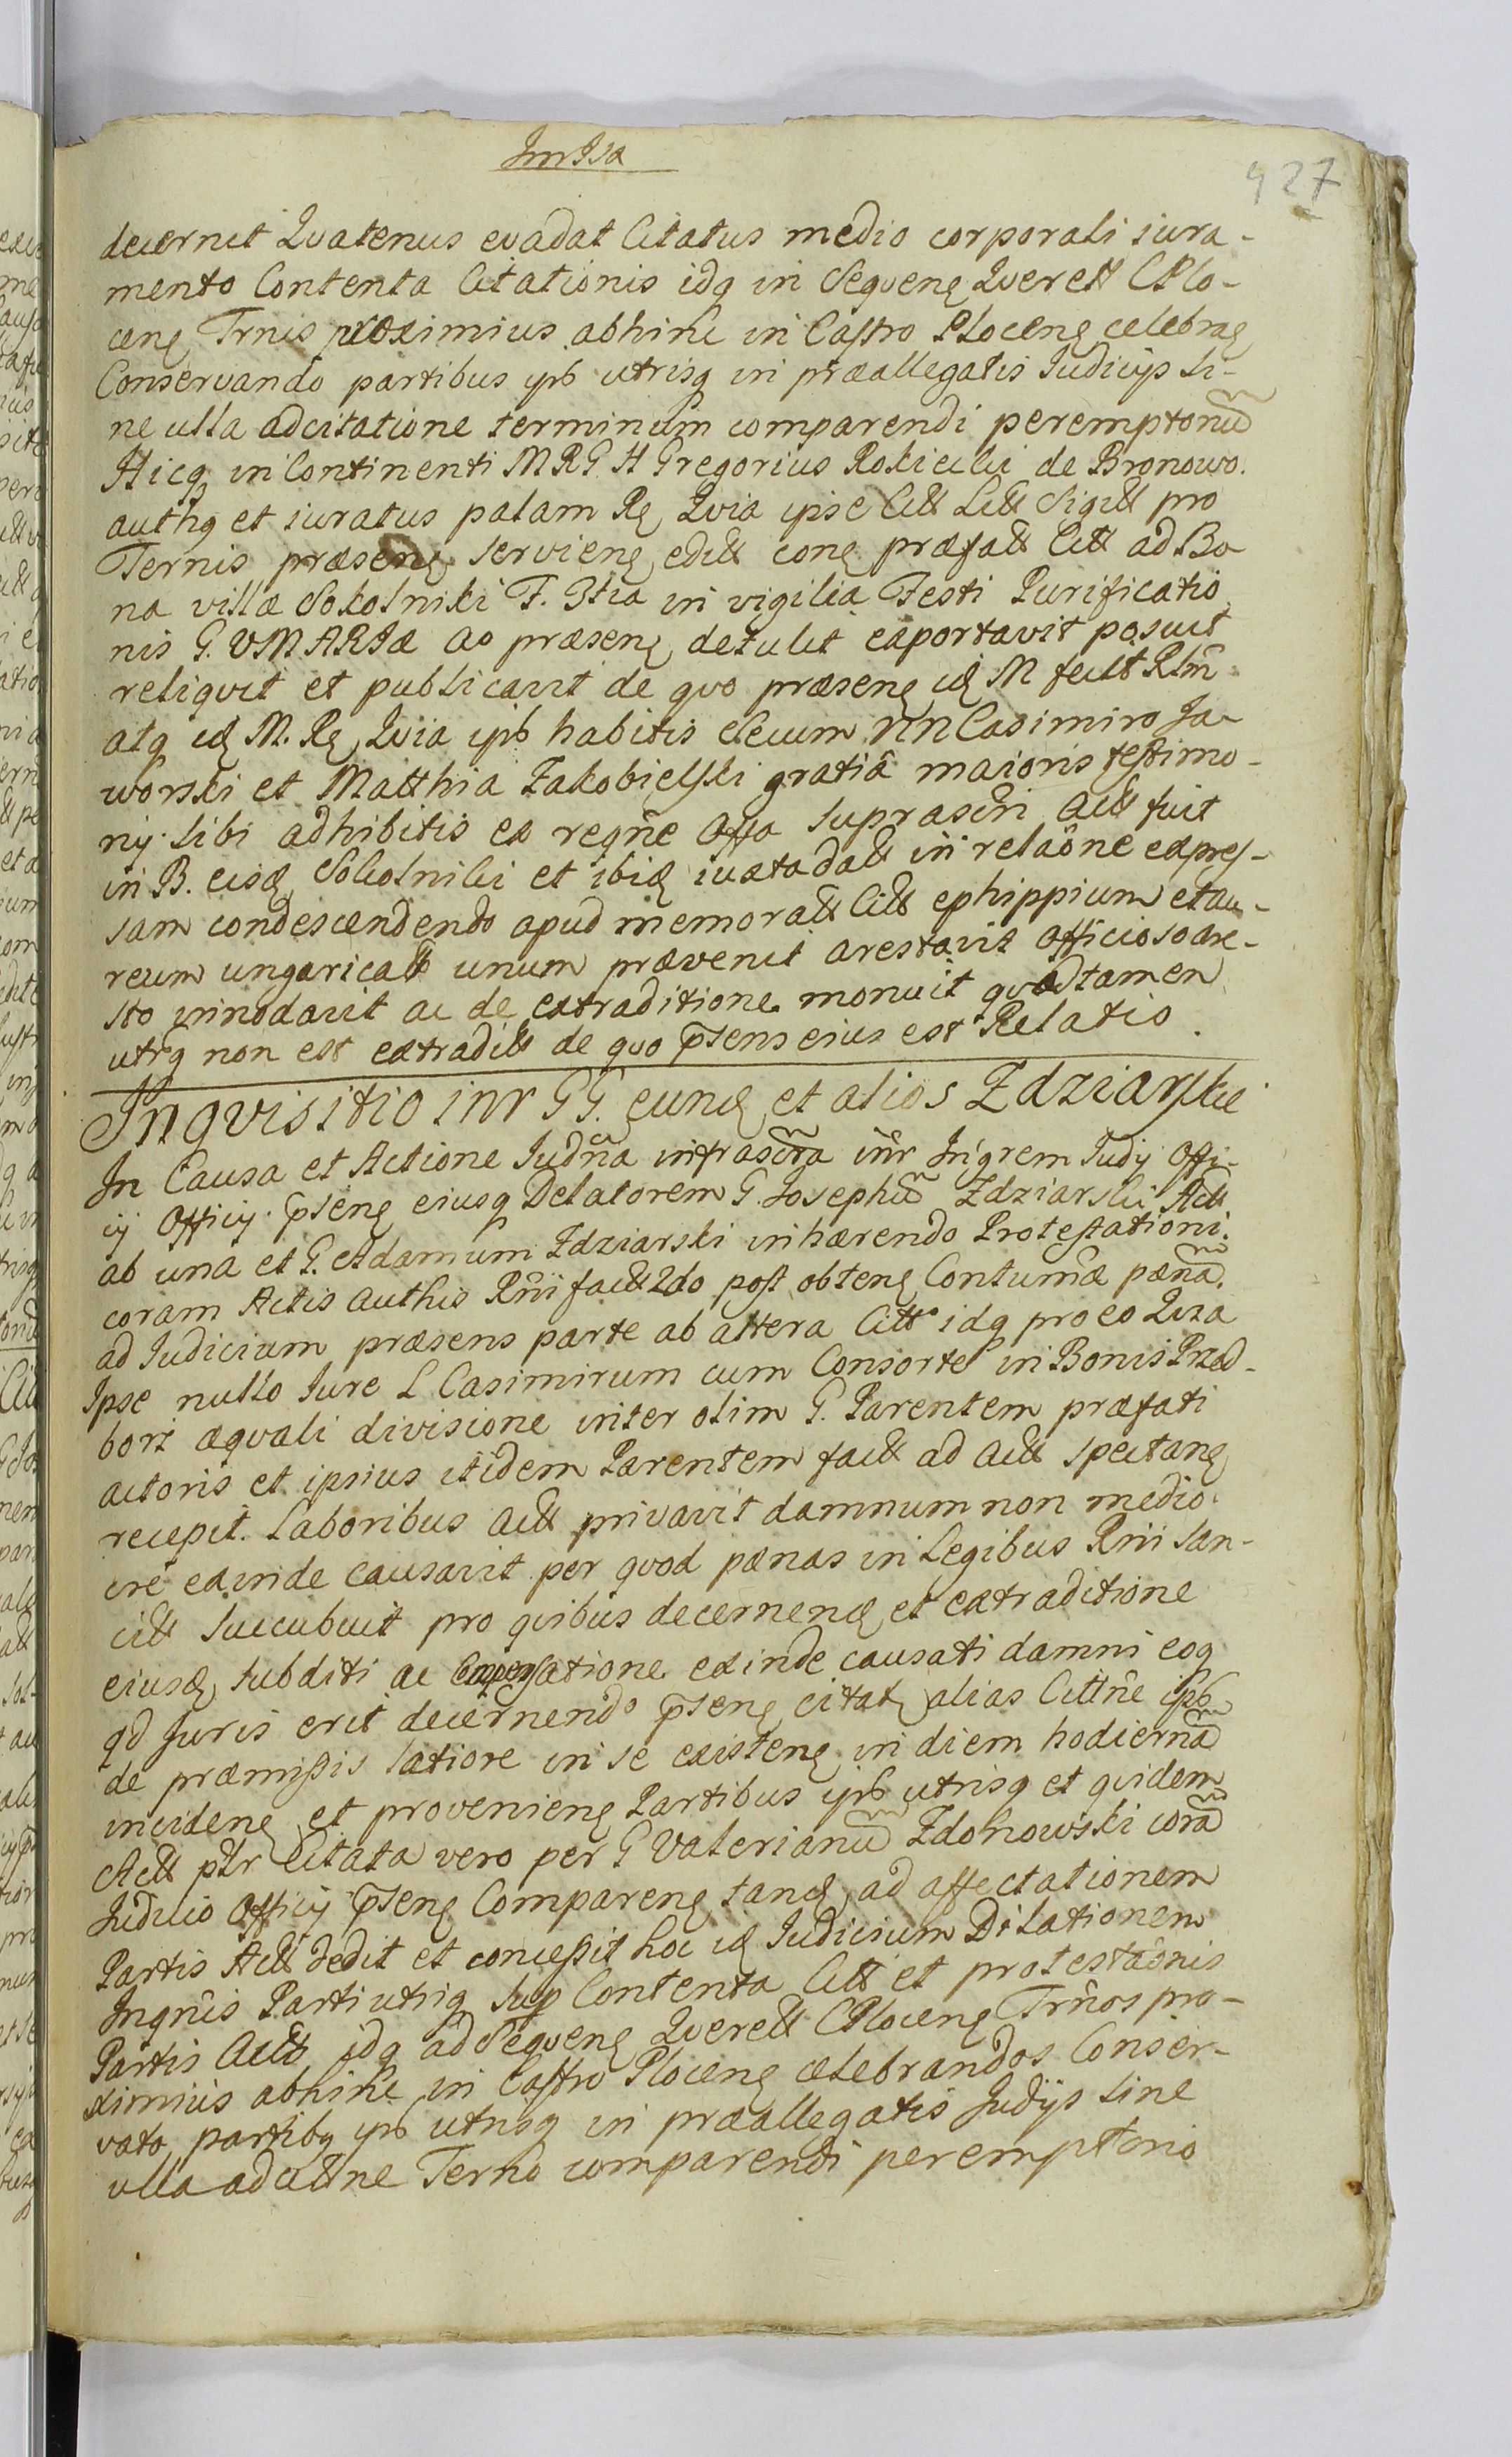 927
decernit Quatenus evadat Citatus medio corporali iura-
mento Contenta Citationis idq in Sequenę Querell CPlo-
cenę Trnis proximius abhinc in Castro Plocenę celebraę
Conservando partibus ipb utrisq in præallegatis Iudicijs si-
ne ulla adcitatione terminum comparendi peremptoriũ
Hicq in Continenti MRG H Gregorius Rokicki de Bronowo
authę et iuratus palam Rę Quia ipse Citt Litt Sigill pro
Ternis præsenę servienę editt conę præfatt Citt ad Bo
na villæ Sokolniki F. 3tia in vigilia Festi Purificatio
nis G. VMARIæ ao præsenę detulit exportavit posuit
reliquit et publicavit de quo præsenę id M fecit Rlm
atq id M. Rę Quia ipb habitis secum NN Casimiro Ja
worski et Matthia Zakobielski gratiâ maioris testimo-
nij sibi adhibitis ex reqñe Offo suprascri Act fuit
in B. eisd Sokolniki et ibid iuxta datt in relaône expres-
sam condescendendo apud memoratt Citt ephippium et au-
reum ungaricatt unum prævenit arestavit officioso are-
sto innodavit ac de extraditione monuit quod tamen
utrq non est extraditt de quo p̃sens eius est Relatio.
Inquisitio inr GG. eund et alios Zdziarskie
In Causa et Actione Iudña infrascrã iñr Ingrem Iudij Offi-
cij Officij p̃senę eiusq Delatorem G. Josephũ Zdziarski Act
ab una et G. Adamum Zdziarski inhærendo Protestationi
coram Actis Authis Rñi fact 2do post obtenę Contumã pænã
ad Iudicium præsens parte ab altera Citt idq pro eo Quia
Ipse nullo Iure L Casimirum cum Consorte in Bonis Przed-
borz æquali divisione inter olim G. Parentem præfati
actoris et ipsius itidem Parentem fact ad Act spectanę
recepit. Laboribus Act privavit damnum non medio-
cre exinde causavit per quod pænas in Legibus Rñi san-
citt succubuit pro quibus decernend et extraditione
eiusd subditi ac compensatione exinde causati damni eoq
qd Iuris erit decernendo p̃senę citatę alias Cittñe ipb
de præmissis latiore in se existenę in diem hodiernã
incidenę et provenienę Partibus ipb utrisq et quidem
Act ptr Citata vero per G Valerianũ Zdonowski corã
Iudicio Officij p̃senę Comparenę tand ad affectationem
Partis Act dedit et concessit hoc id Iudicium Dilationem
Inqnis Parti utriq sup Contenta Citt et protestaônis
Partis Act idq ad Sequenę Querell CPlocenę Trños pro-
ximius abhinc in Castro Plocenę celebrandos Conser-
vato partibq ipb utrisq in præallegatis Judijs sine
ulla adcittne Terno comparendi peremptorio